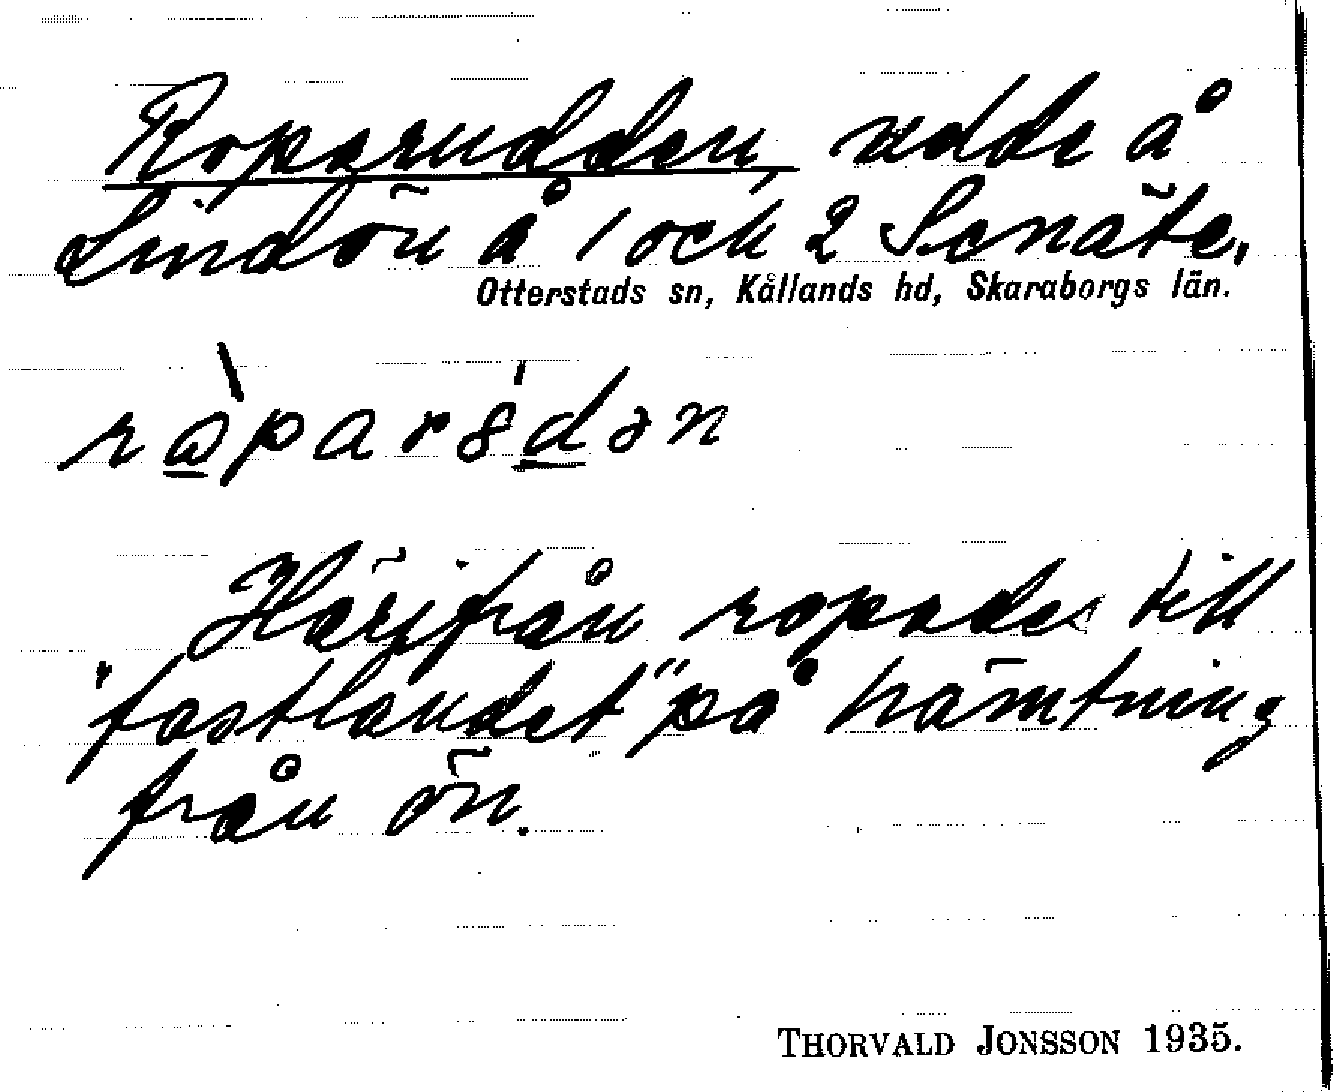 Roparudden, udde å
Lindön å 1 och 2 Senäte,
Otterstads sn, Kållands hd, Skaraborgs län.
Härifrån ropades till
"fastlandet" på hämtning
från ön.
THORVALD JONSSON 1935.